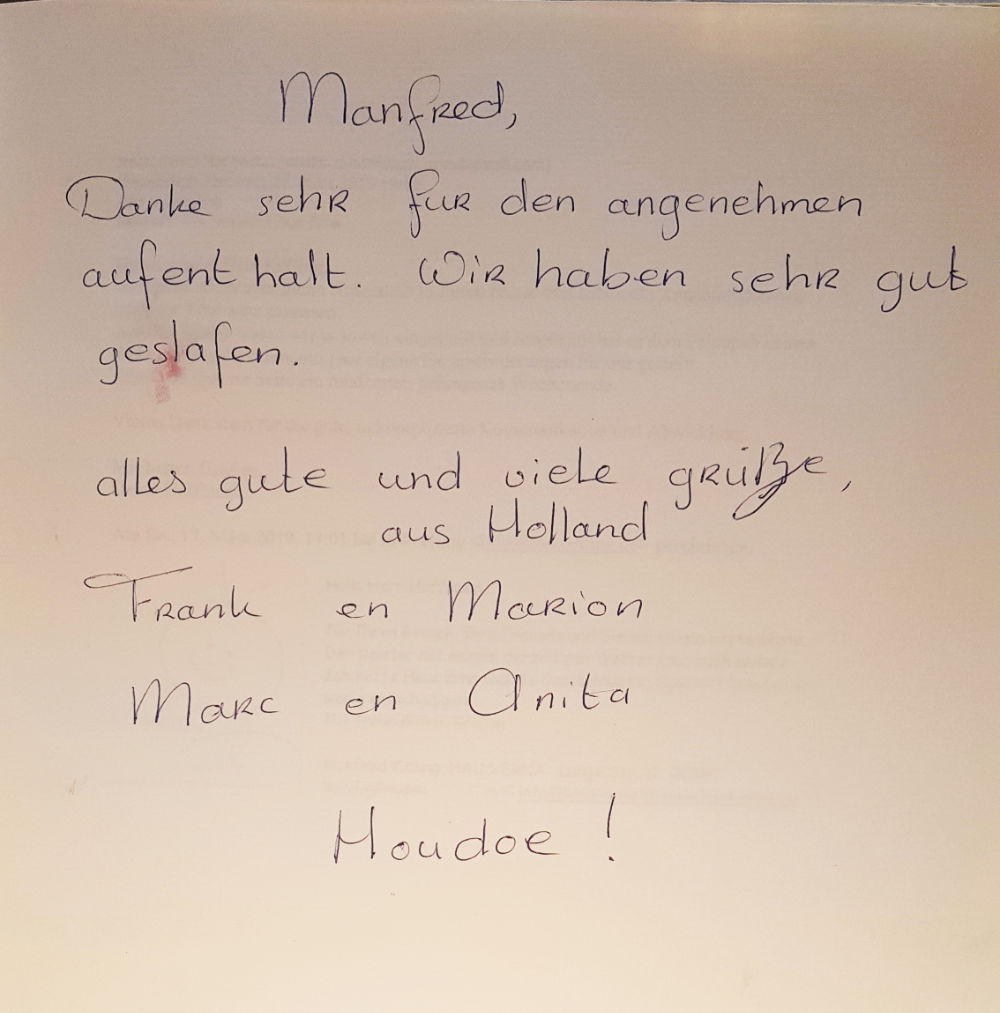 Manfred,
Danke sehr fur den angenehmen
aufent halt. Wir haben sehr gut
geslafen.
alles gute und viele grüße,
aus Holland
Frank en Marion
Marc en Anita
Houdoe !